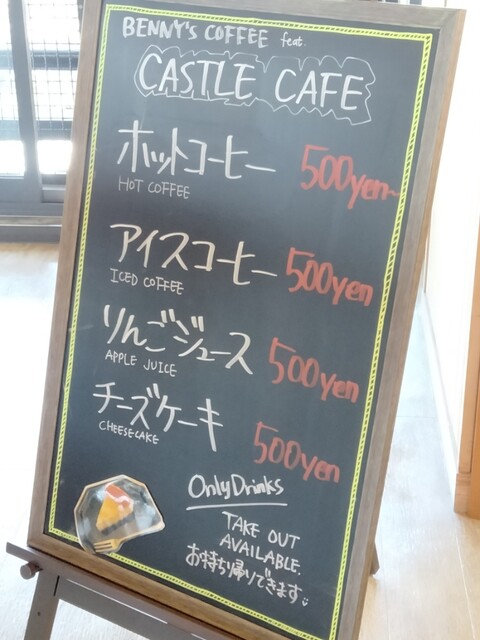 BENNY'S COFFEE feat.
CASTLE CAFE
ホットコーヒー 500yen~
HOT COFFEE
アイスコーヒー 500yen
ICED COFFEE
りんごジュース 500yen
APPLE JUICE
チーズケーキ 500yen
CHEESECAKE
Only Drinks
TAKE OUT
AVAILABLE.
お持ち帰りできます